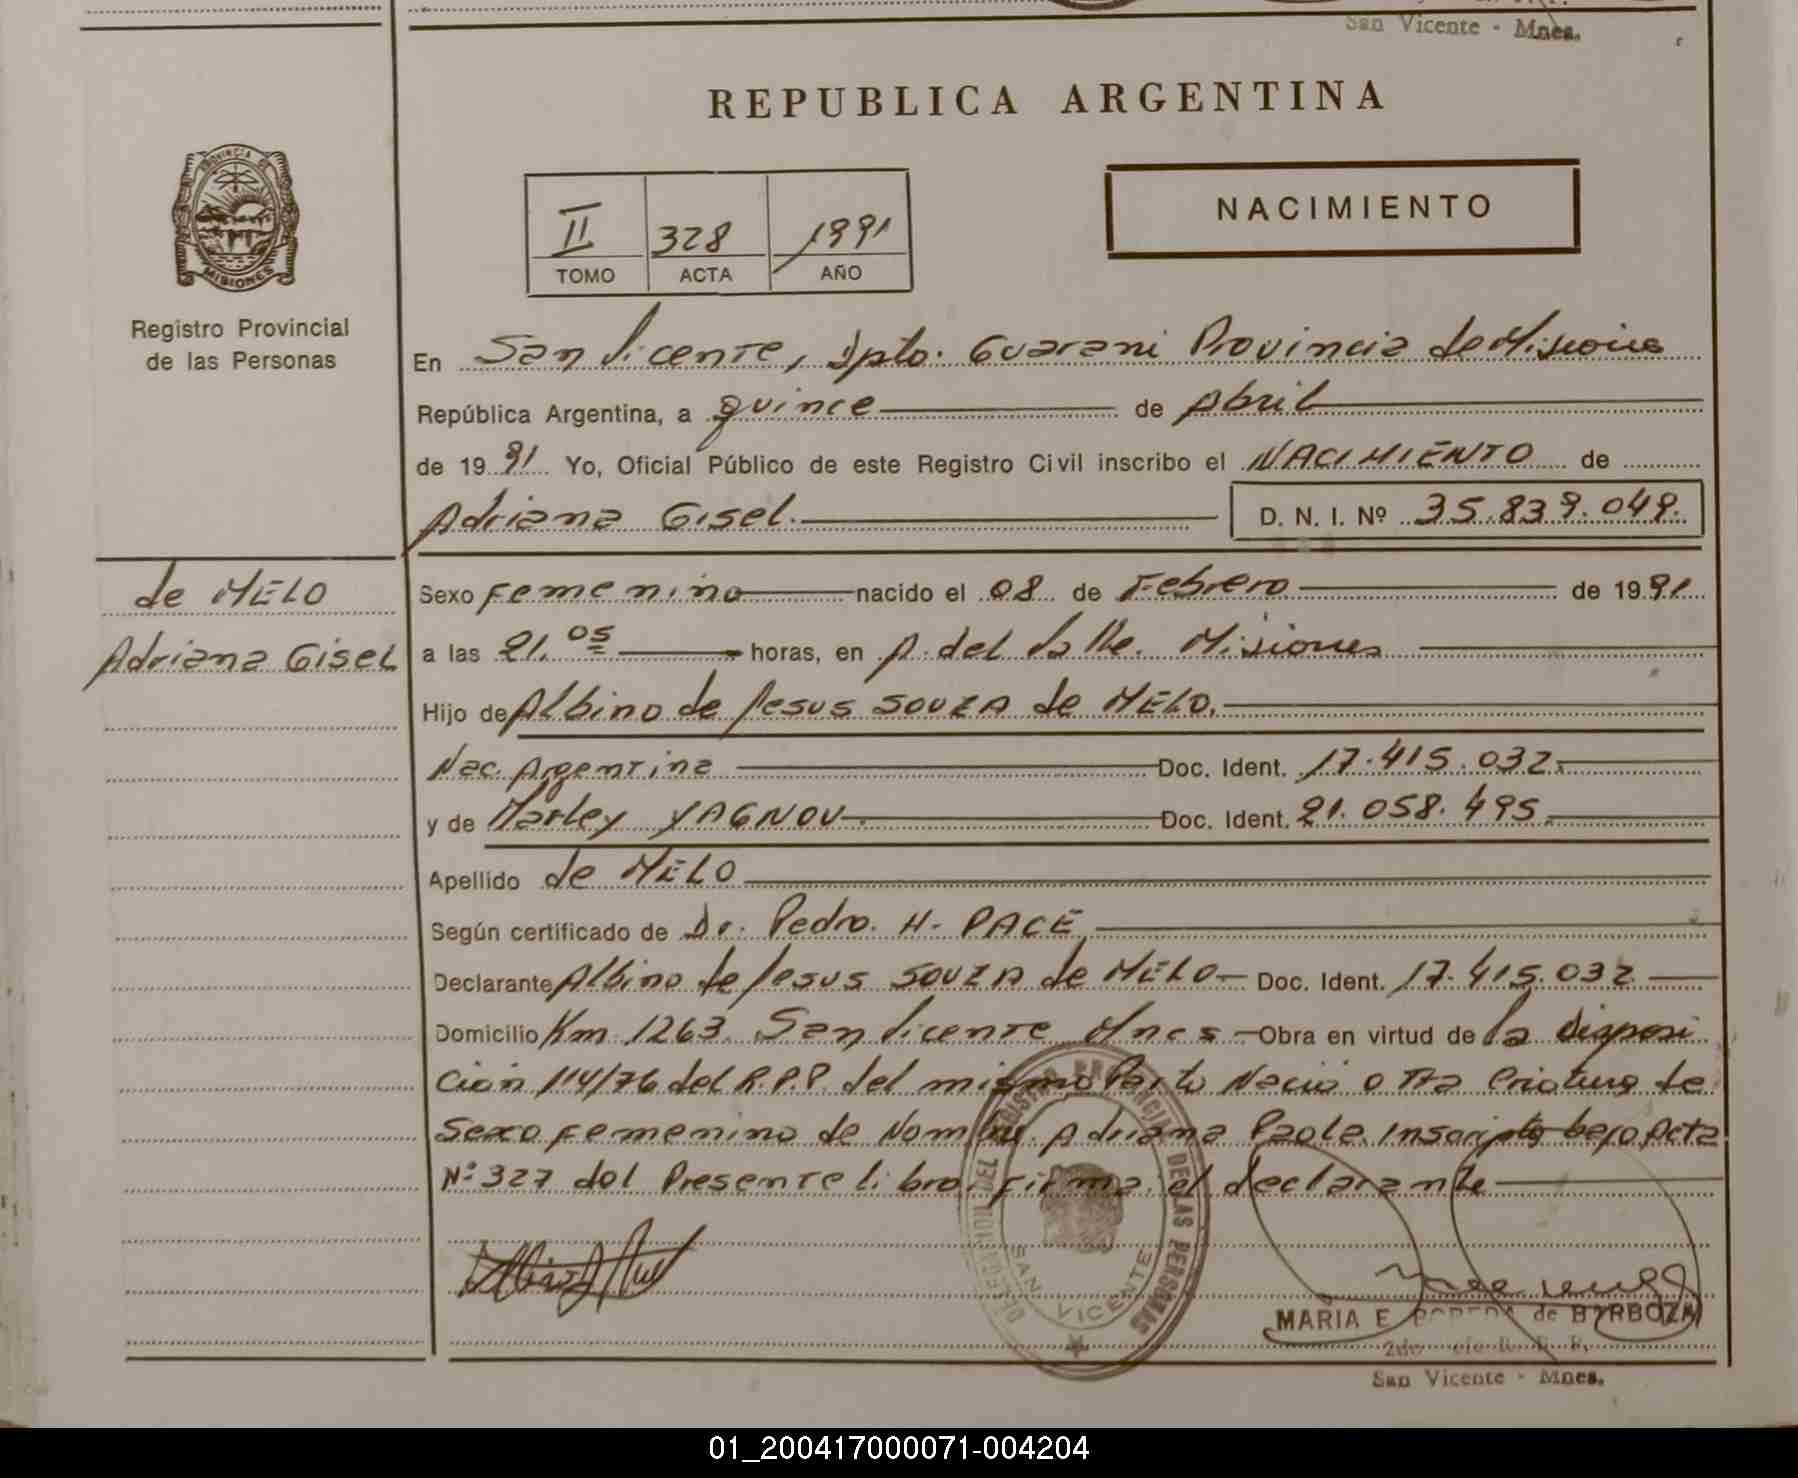 San Vicente - Mnes.
REPUBLICA ARGENTINA
PROVINCIA DE
MISIONES
Registro Provincial
de las Personas
II 328 1991
TOMO ACTA AÑO
NACIMIENTO
En San Vicente, Dpto. Guarani Provincia de Misiones
República Argentina, a quince de Abril
de 1991 Yo, Oficial Público de este Registro Civil inscribo el NACIMIENTO de
Adriana Gisel. D. N. I. Nº 35.839.049.
de MELO
Adriana Gisel
Sexo Femenino nacido el 08 de Febrero de 1991
a las 21.05 horas, en A. del Valle. Misiones
Hijo de Albino de Jesus SOUZA de MELO.
Nac. Argentina Doc. Ident. 17.415.032.
y de Marley YAGNOU Doc. Ident. 21.058.495.
Apellido de MELO
Según certificado de Dr. Pedro. H. PACE
Declarante Albino de Jesus SOUZA de MELO Doc. Ident. 17.415.032
Domicilio Km 1263. San Vicente Mnes Obra en virtud de la disposi
ción 114/76 del R.P.P. del mismo Parto Nacio o tra Criatura de
Sexo femenino de Nombre Adriana Paola Inscripta bajo Acta
Nº 327 del Presente libro. firma el declarante
SAN VICENTE
MARIA E de BARBOZA
San Vicente - Mnes.
01_200417000071-004204